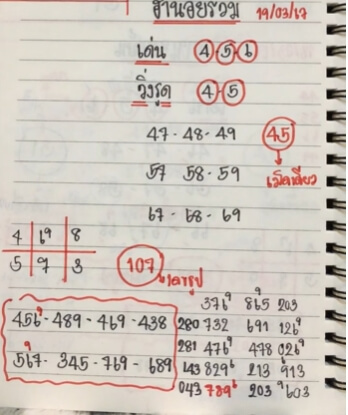 ฮานอยรวม 19/03/67
เด่น 4-5-6
วิ่งรูด 4-5
47-48-49 45
57 58-59 เม็ดเดียว
67-68-69
4 6⁹ 8
5 7 3 107 เลขรูป
376⁹ 865⁹ 203
456⁹-489-469-438 280 732 691 126⁹
281 476⁹ 478 026⁹
567⁹-345-769-689 143 829⁶ 213 913⁶
043 789⁶ 203 ⁹603